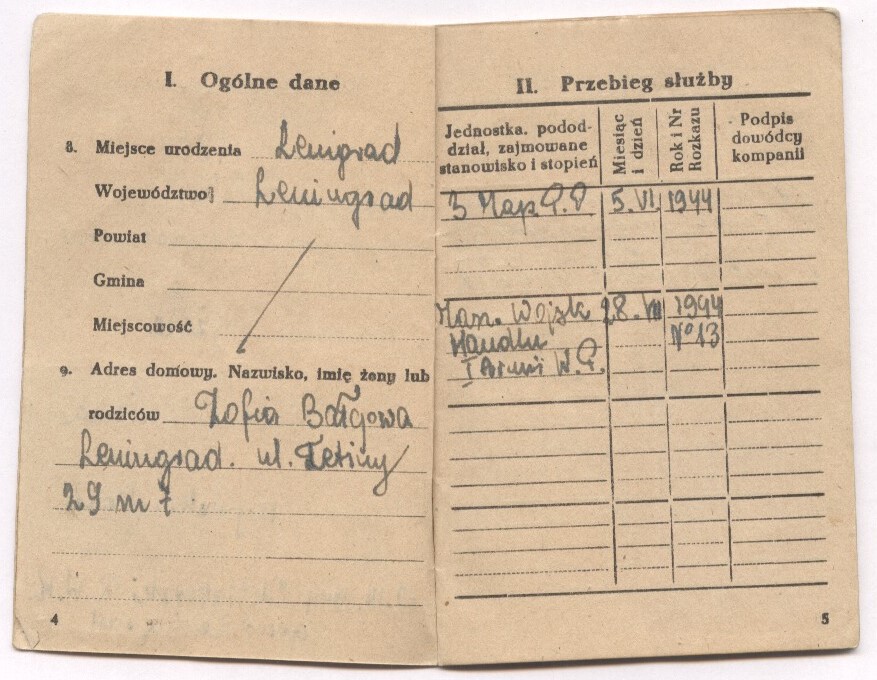 I. Ogólne dane
8. Miejsce urodzenia Lenigrad
Województwo Leningrad
Powiat
Gmina
Miejscowość
9. Adres domowy. Nazwisko, imię żony lub
rodziców Zofia Bałgowa
Leningrad. ul.
29 m 7
4
II. Przebieg służby
Jednostka. podod-
dział, zajmowane
stanowisko i stopień
Miesiąc
i dzień
Rok i Nr
Rozkazu
Podpis
dowódcy
kompanii
3 Zap. P.P 5.VI 1944
Wojsk 28. 1944
Handlu № 13
I Armii W.P.
5